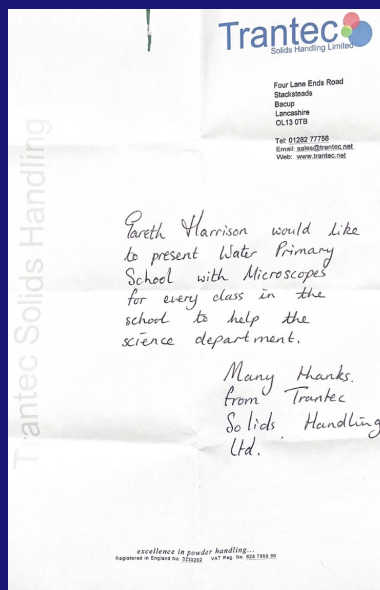 Trantec
Solids Handling Limited
Four Lane Ends Road
Stacksteads
Bacup
Lancashire
OL13 0TB
Tel: 01282 77756
Email: sales@trantec.net
Web: www.trantec.net
Trantec Solids Handling
Gareth Harrison would like
to present Water Primary
School with Microscopes
for every class in the
school to help the
science department.
Many thanks.
from Trantec
Solids Handling
Ltd.
excellence in powder handling...
Registered in England No. 3233202 VAT Reg. No 629 7689 50